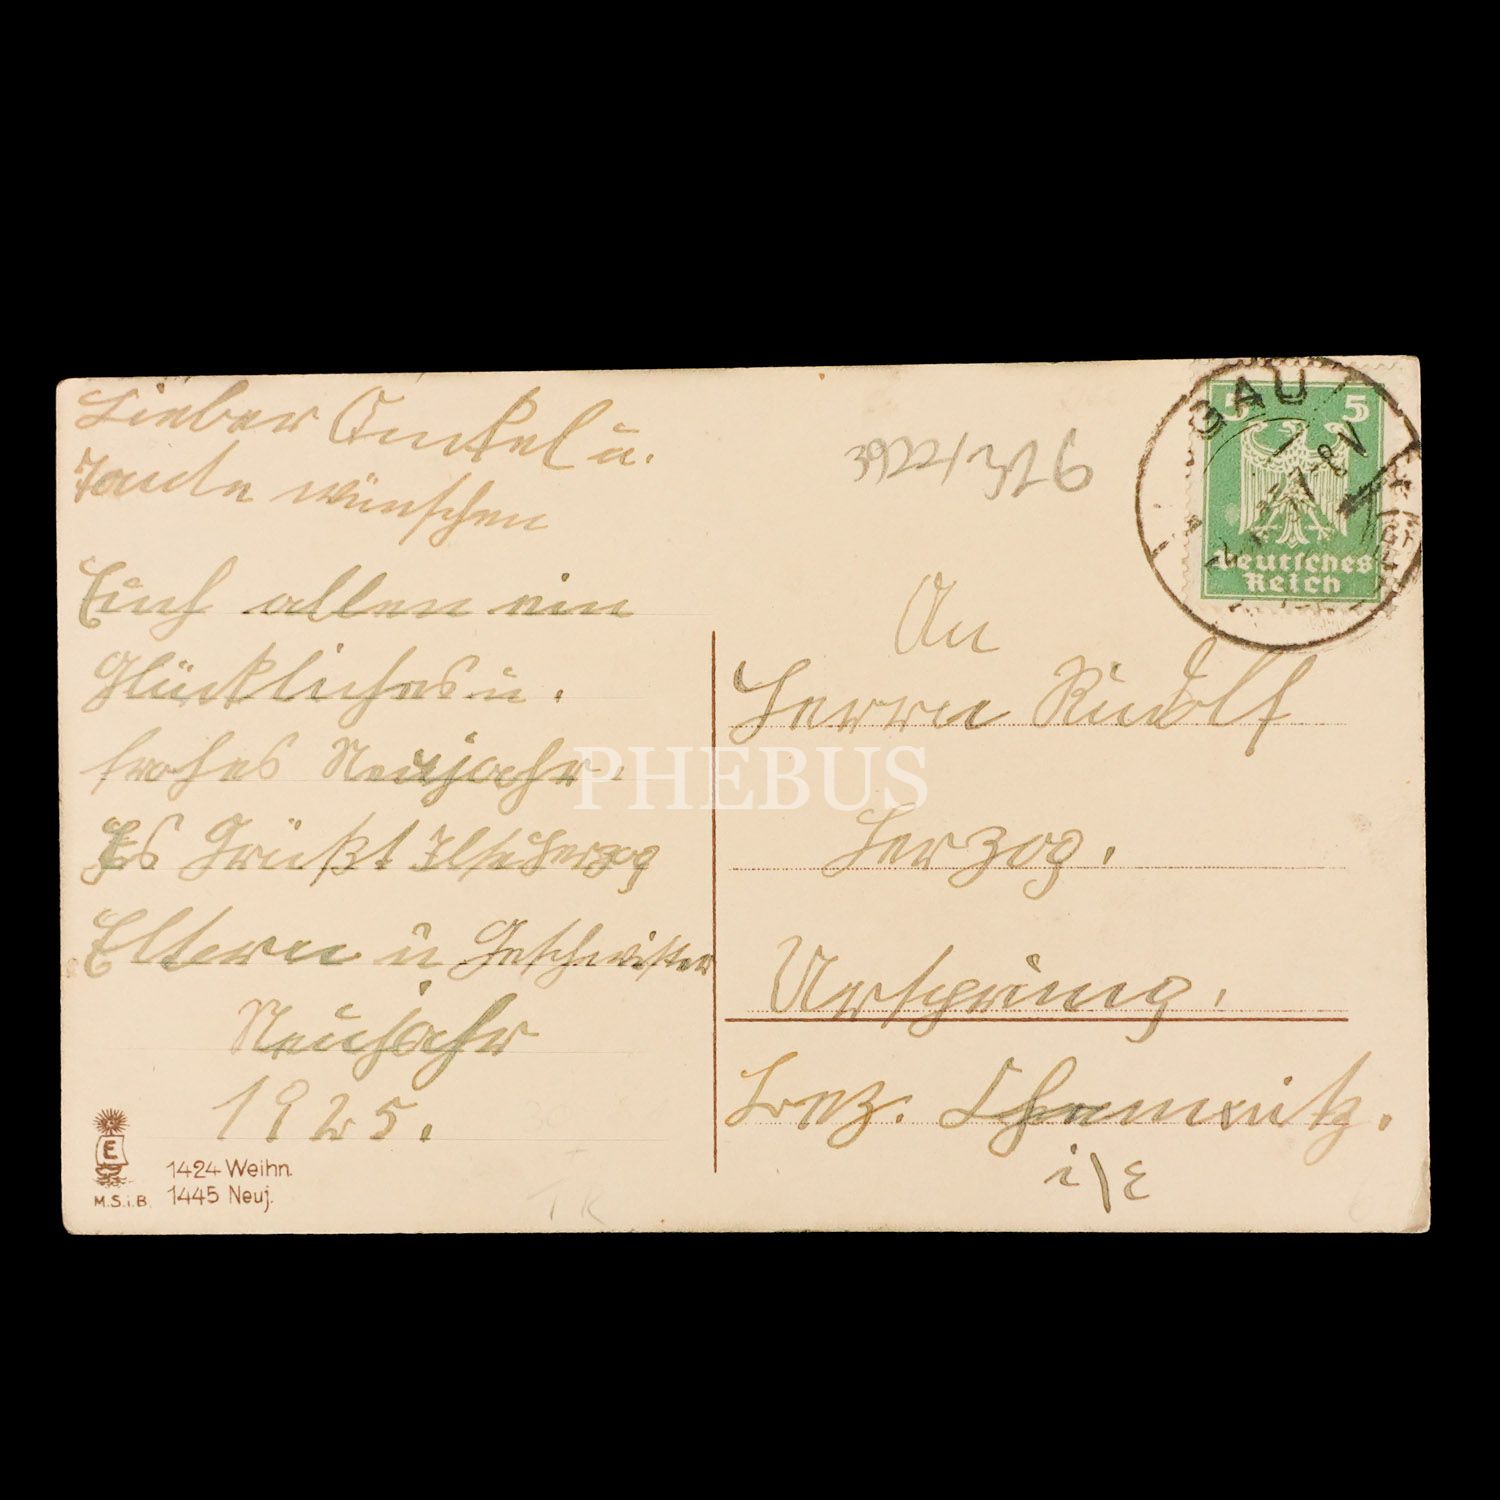 Lieber Onkel u.
Tante wünschen
Euch allen ein
Glückliches u.
frohes Neujahr.
Es Grüßt Ilse Herzog
Eltern u Geschwister
Neujahr
1925.
E
M.S.i.B.
1424 Weihn.
1445 Neuj.
GAU
7-8 V
5 5
Deutsches
Reich
An
Herrn Rudolf
Herzog.
Ursprung.
Bez. Chemnitz.
i/E
PHEBUS